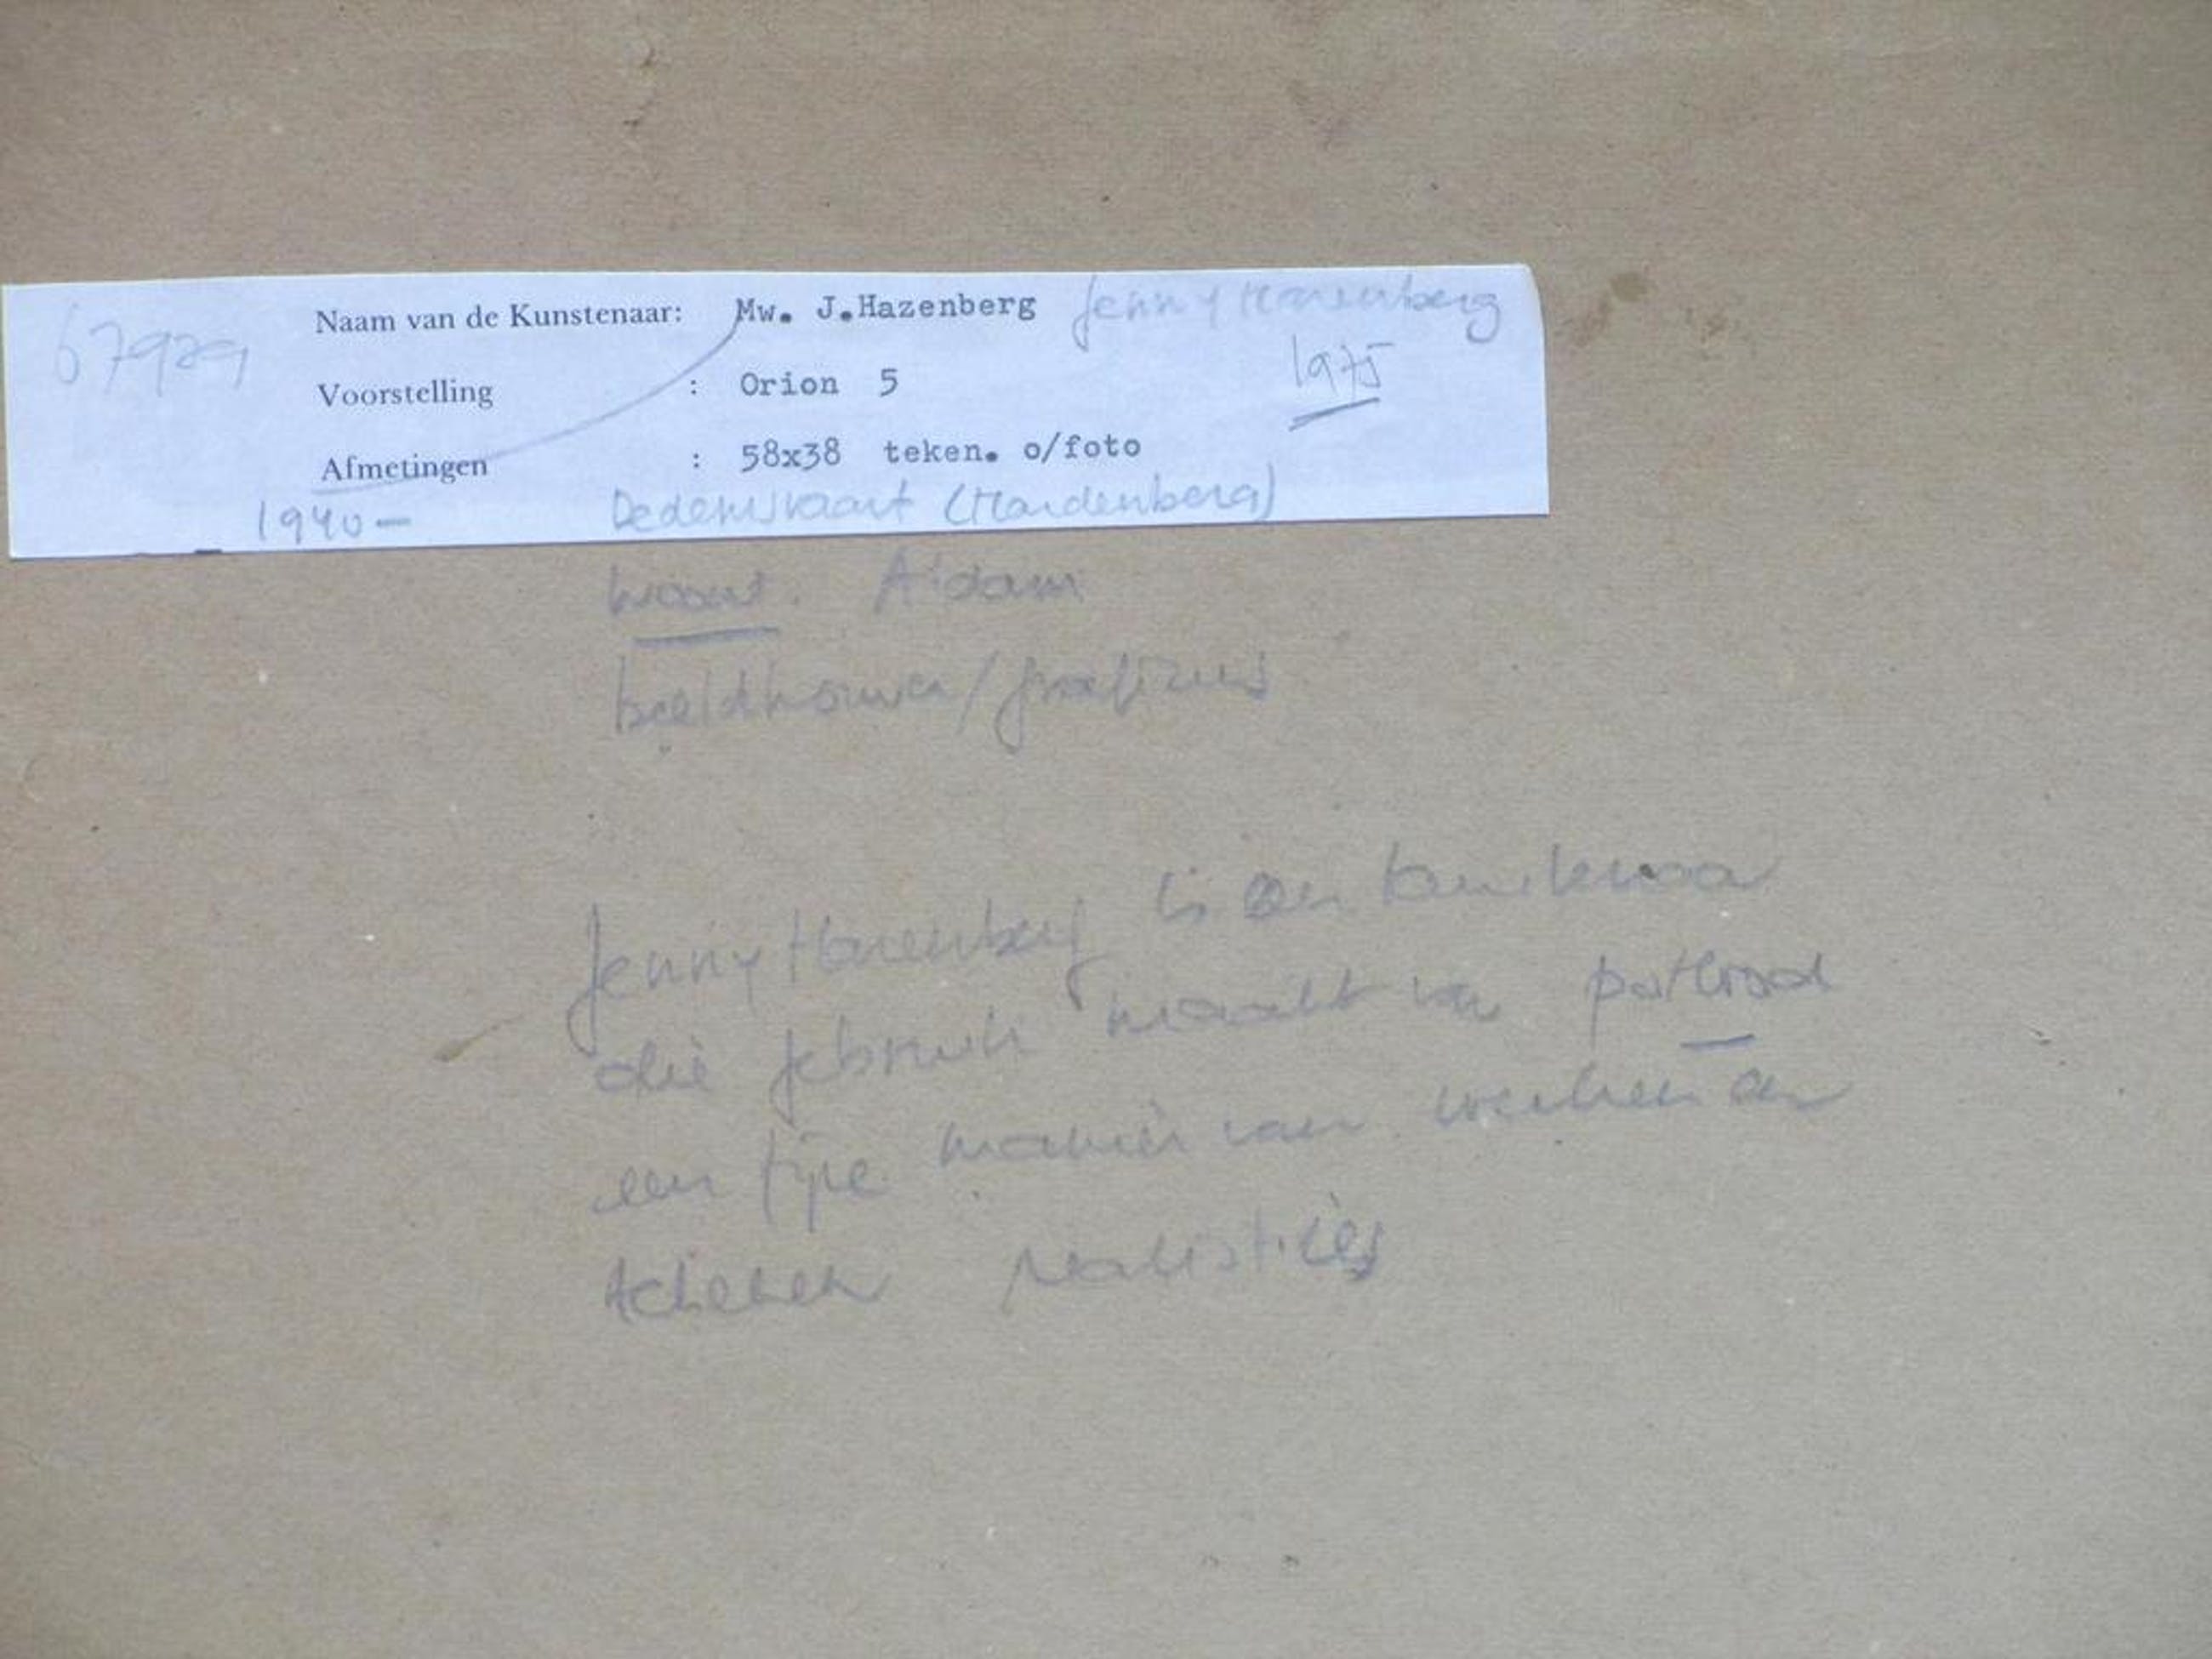 67929
Naam van de Kunstenaar: Mw. J.Hazenberg Jenny Hazenberg
Voorstelling : Orion 5 1975
Afmetingen : 58x38 teken. o/foto
1940 – Dedemsvaart (Hardenberg)
woont. A'dam
beeldhouwer/graficus
Jenny Hazenberg is een kunstenaar
die gebruik maakt van potlood
een fijne manier van werken en
tekenen realisties